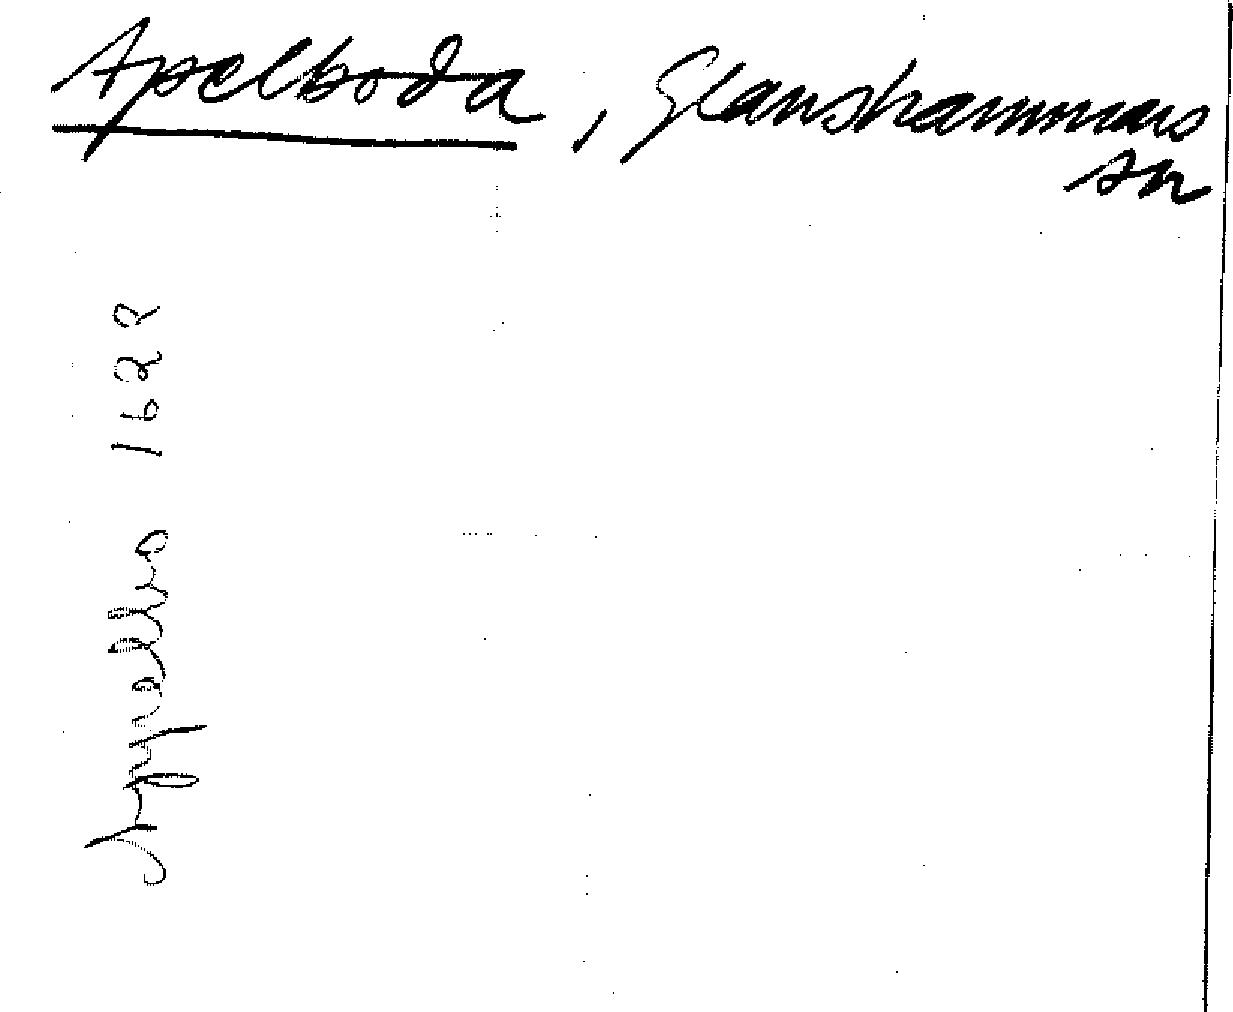 Apelboda, Glanshammars
sn
Appelbo 1628